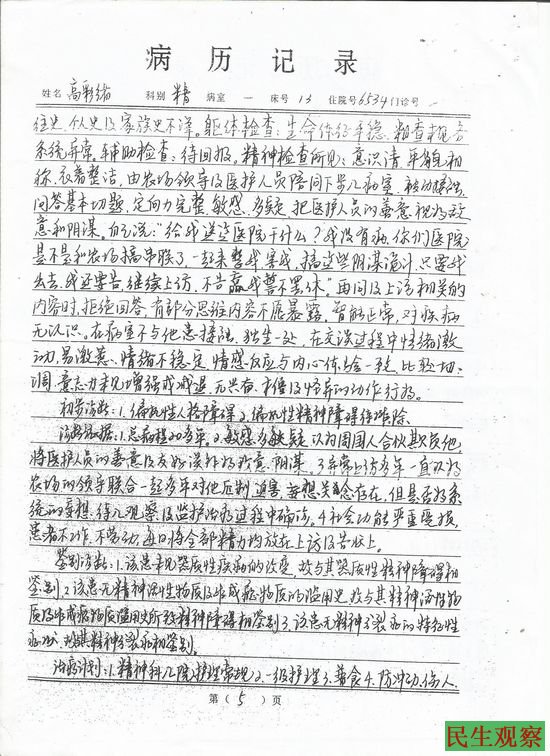 病历记录
姓名 高彩娣 科别 精 病室 一 床号 13 住院号 6534 门诊号
往史、个人史及家族史不详。躯体检查：生命体征平稳，粗查视音
系统异常。辅助检查：待回报。精神检查所见：意识清，年貌相
称，衣着整洁，由农场领导及医护人员陪同下步入病室，被动接触，
问答基本切题，定向力完整，敏感，多疑，把医护人员的善意视为敌
意和阴谋。自己说：“给我送这医院干什么？我没有病，你们医院
是不是和农场搞串联了一起来整我害我，搞这些阴谋诡计，只要我
出去，我还要告，继续上访，不告赢我誓不罢休。”再问及上访相关的
内容时，拒绝回答，有部分思维内容不愿暴露，智能正常，对疾病
无认识。在病室不与他患接触，独坐一处，在交谈过程中情绪激
动，易激惹，情绪不稳定，情感反应与内心体验一致，比较协
调，意志力未见增强或减退，无兴奋、 及怪异的动作行为。
初步诊断：1.偏执性人格障碍 2.偏执性精神障碍待排除
诊断依据：1.总病程20多年。2.敏感多疑，认为周围人合伙欺负他，
将医护人员的善意及友好误解为敌意、阴谋。3.异常上访多年，一直认为
农场的领导联合一起多年对他压制、迫害，妄想观念存在，但是否为系
统的妄想，待观察及监护治疗过程中确诊。4.社会功能严重受损，
患者不工作，不劳动，每日将全部精力均放在上访及告状上。
鉴别诊断：1.该患未见器质性疾病的改变，故与其器质性精神障碍相
鉴别。2.该患无精神活性物质及非成瘾物质的滥用史，故与其精神活性物
质及非成瘾物质滥用史所致精神障碍相鉴别。3.该患无精神分裂症的特征性
症状，故其精神分裂症相鉴别。
治疗计划：1.精神科入院护理常规 2.一级护理 3.普食 4.防冲动、伤人、
第（5）页
民生观察